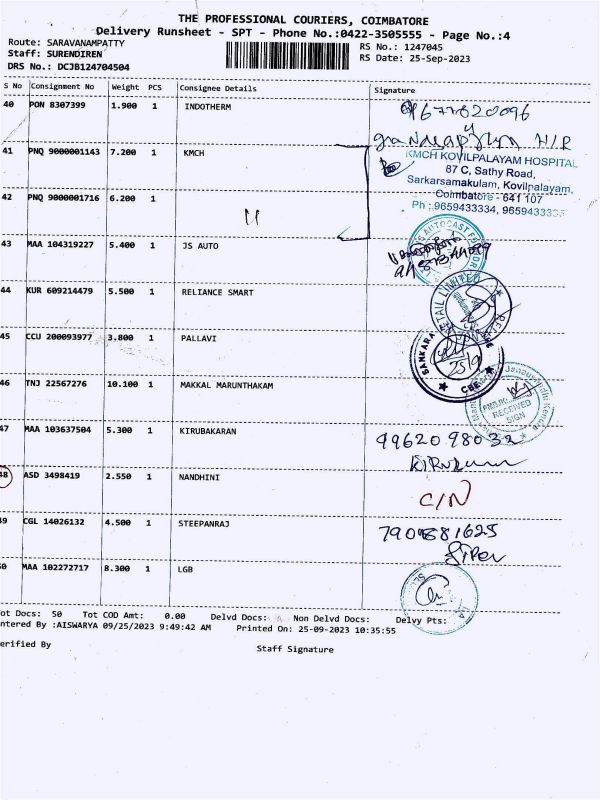 THE PROFESSIONAL COURIERS, COIMBATORE
Delivery Runsheet - SPT - Phone No.:0422-3505555 - Page No.:4
Route: SARAVANAMPATTY
RS No.: 1247045
Staff: SURENDIREN
RS Date: 25-Sep-2023
DRS No.: DCJB124704504
S No Consignment No Weight PCS Consignee Details Signature
40 PON 8307399 1.900 1 INDOTHERM
H/R
41 PNQ 9000001143 7.200 1 KMCH
KMCH KOVILPALAYAM HOSPITAL
87 C, Sathy Road,
Sarkarsamakulam, Kovilpalayam,
Coimbatore - 641 107
Ph :9659433334, 9659433335
42 PNQ 9000001716 6.200 1
11
43 MAA 104319227 5.400 1 JS AUTO
44 KUR 609214479 5.500 1 RELIANCE SMART
45 CCU 200093977 3.800 1 PALLAVI
SANKARA
25/9
CBE
46 TNJ 22567276 10.100 1 MAKKAL MARUNTHAKAM
RECEIVED
SIGN
47 MAA 103637504 5.300 1 KIRUBAKARAN
9962098032
48 ASD 3498419 2.550 1 NANDHINI
C/N
49 CGL 14026132 4.500 1 STEEPANRAJ
50 MAA 102272717 8.300 1 LGB
ot Docs: 50 Tot COD Amt: 0.00 Delvd Docs: Non Delvd Docs: Delvy Pts:
ntered By :AISWARYA 09/25/2023 9:49:42 AM Printed On: 25-09-2023 10:35:55
erified By
Staff Signature